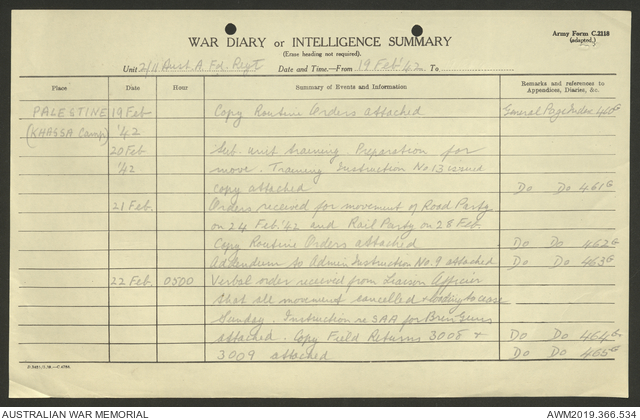 WAR DIARY or INTELLIGENCE SUMMARY
(Erase heading not required).
Army Form C.2118
(adapted.)
Unit 2/11 Aust. A. Fd. Regt Date and Time.—From 19 Feb '42 To
Place Date Hour Summary of Events and Information Remarks and references to Appendices, Diaries, &c.
PALESTINE 19 Feb Copy Routine Orders attached General Page Index 460G
(KHASSA Camp) '42
20 Feb Sub. unit training. Preparation for
'42 move. Training Instruction No 13 issued
copy attached Do Do 461G
21 Feb. Orders received for movement of Road Party
on 24 Feb. '42 and Rail Party on 28 Feb
Copy Routine Orders attached Do Do 462G
Addendum to Admin Instruction No. 9 attached Do Do 463G
22 Feb. 0500 Verbal order received from Liaison Officer
that all movement cancelled & loading to cease
Sunday. Instruction re SAA for Bren Guns
attached. Copy Field Returns 3008 & Do Do 464G
3009 attached Do Do 465G
AUSTRALIAN WAR MEMORIAL AWM2019.366.534